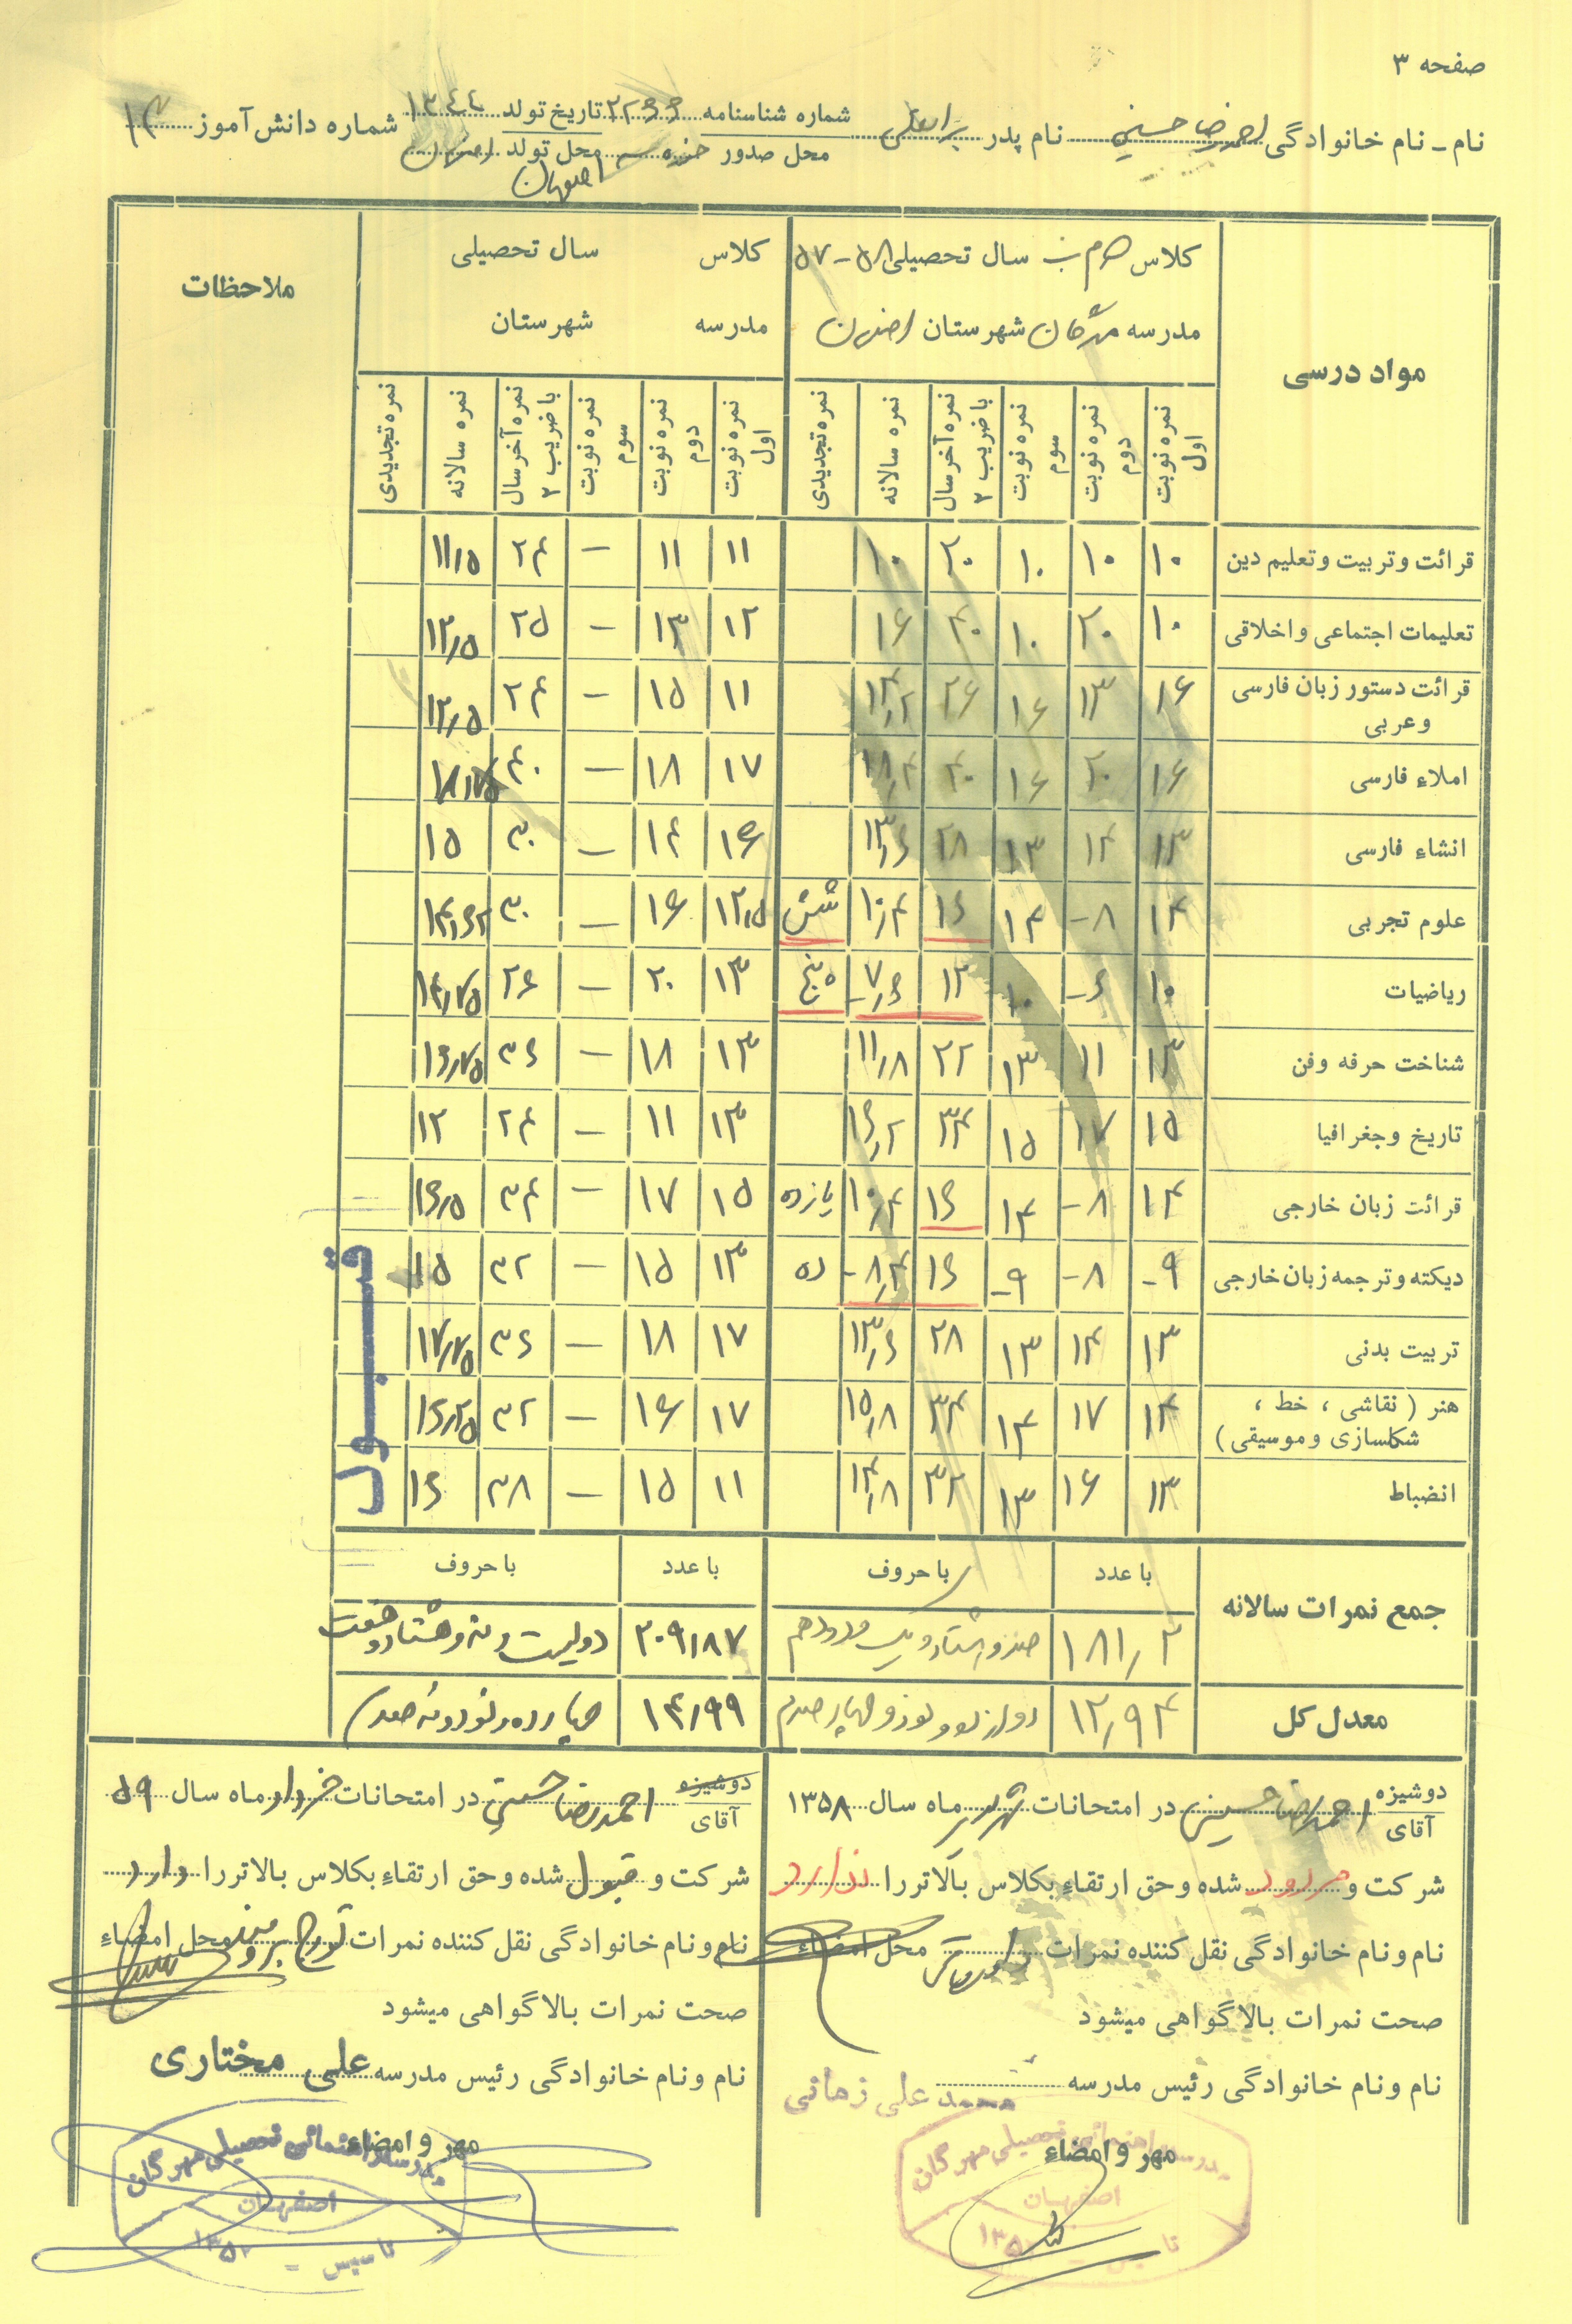 صفحه ۳
نام ـ نام خانوادگی احمدرضا حسینی نام پدر شماره شناسنامه ۲۲۶۶ تاریخ تولد ۱۳۴۴ شماره دانش آموز ۱۳
محل صدور حوزه محل تولد اصفهان
اصفهان
مواد درسی
کلاس دوم سال تحصیلی ۵۸-۵۷
کلاس سال تحصیلی
ملاحظات
مدرسه مهرگان شهرستان اصفهان
مدرسه شهرستان
نمره نوبت اول نمره نوبت دوم نمره نوبت سوم نمره آخر سال با ضریب ۲ نمره سالانه نمره تجدیدی نمره نوبت اول نمره نوبت دوم نمره نوبت سوم نمره آخر سال با ضریب ۲ نمره سالانه نمره تجدیدی
قرائت و تربیت و تعلیم دین ۱۰ ۱۰ ۱۰ ۲۰ ۱۰ ۱۱ ۱۱ – ۲۴ ۱۱٫۵
تعلیمات اجتماعی و اخلاقی ۱۰ ۲۰ ۱۰ ۴۰ ۱۶ ۱۲ ۱۳ – ۲۵ ۱۲٫۵
قرائت دستور زبان فارسی و عربی ۱۶ ۱۳ ۱۶ ۲۶ ۱۴٫۲ ۱۱ ۱۵ – ۲۴ ۱۲٫۵
املاء فارسی ۱۶ ۲۰ ۱۶ ۴۰ ۱۸٫۴ ۱۷ ۱۸ – ۴۰ ۱۸٫۷۵
انشاء فارسی ۱۳ ۱۴ ۱۳ ۲۸ ۱۳٫۶ ۱۶ ۱۴ – ۳۰ ۱۵
علوم تجربی ۱۴ ۸- ۱۴ ۱۶ ۱۰٫۴ شش ۱۲٫۵ ۱۶ – ۳۰ ۱۴٫۶۲
ریاضیات ۱۰ ۶- ۱۰ ۱۲ ۷٫۶- پنج ۱۳ ۲۰ – ۲۶ ۱۴٫۷۵
شناخت حرفه و فن ۱۳ ۱۱ ۱۳ ۲۲ ۱۱٫۸ ۱۳ ۱۸ – ۳۶ ۱۶٫۷۵
تاریخ و جغرافیا ۱۵ ۱۷ ۱۵ ۳۴ ۱۶٫۲ ۱۳ ۱۱ – ۲۴ ۱۲
قرائت زبان خارجی ۱۴ ۸- ۱۴ ۱۶ ۱۰٫۴ یازده ۱۵ ۱۷ – ۳۴ ۱۶٫۵
دیکته و ترجمه زبان خارجی ۹- ۸- ۹- ۱۶ ۸٫۴- ده ۱۳ ۱۵ – ۳۲ ۱۵
تربیت بدنی ۱۳ ۱۴ ۱۳ ۲۸ ۱۳٫۶ ۱۷ ۱۸ – ۳۶ ۱۷٫۷۵
هنر ( نقاشی ، خط ، شکلسازی و موسیقی ) ۱۴ ۱۷ ۱۴ ۳۴ ۱۵٫۸ ۱۷ ۱۶ – ۳۲ ۱۶٫۲۵
انضباط ۱۳ ۱۶ ۱۳ ۳۲ ۱۴٫۸ ۱۱ ۱۵ – ۳۸ ۱۶
قبول
جمع نمرات سالانه
با عدد با حروف با عدد با حروف
۱۸۱٫۲ صدو هشتاد و یک و دو دهم ۲۰۹٫۸۷ دویست و نه و هشتاد و هفت
معدل کل ۱۲٫۹۴ دوازده و نود و چهار صدم ۱۴٫۹۹ چهارده و نود و نه صدم
دوشیزه آقای احمدرضا حسینی در امتحانات شهریور ماه سال ۱۳۵۸
شرکت و مردود شده و حق ارتقاء بکلاس بالاتر را ندارد
نام و نام خانوادگی نقل کننده نمرات محل امضاء
صحت نمرات بالا گواهی میشود
نام و نام خانوادگی رئیس مدرسه محمد علی زمانی
مهر و امضاء
مدرسه راهنمائی تحصیلی مهرگان
اصفهان
تاسیس
دوشیزه آقای احمدرضا حسینی در امتحانات خرداد ماه سال ۵۹
شرکت و قبول شده و حق ارتقاء بکلاس بالاتر را دارد
نام و نام خانوادگی نقل کننده نمرات تورج محل امضاء
صحت نمرات بالا گواهی میشود
نام و نام خانوادگی رئیس مدرسه علی مختاری
مهر و امضاء
مدرسه راهنمائی تحصیلی مهرگان
اصفهان
تاسیس –